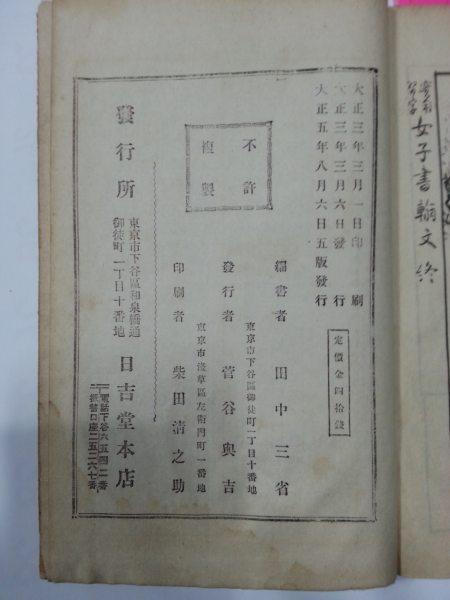 實用
習字
女子書翰文 終
大正三年三月一日印刷
大正三年三月六日發行
大正五年八月六日五版發行
定價金四拾錢
不許
複製
編書者 田中三省
東京市下谷區御徒町一丁目十番地
發行者 菅谷與吉
東京市淺草區左衛門町一番地
印刷者 柴田清之助
發行所
東京市下谷區和泉橋通
御徒町一丁目十番地
日吉堂本店
電話下谷六五四二番
振替口座二五二六七番